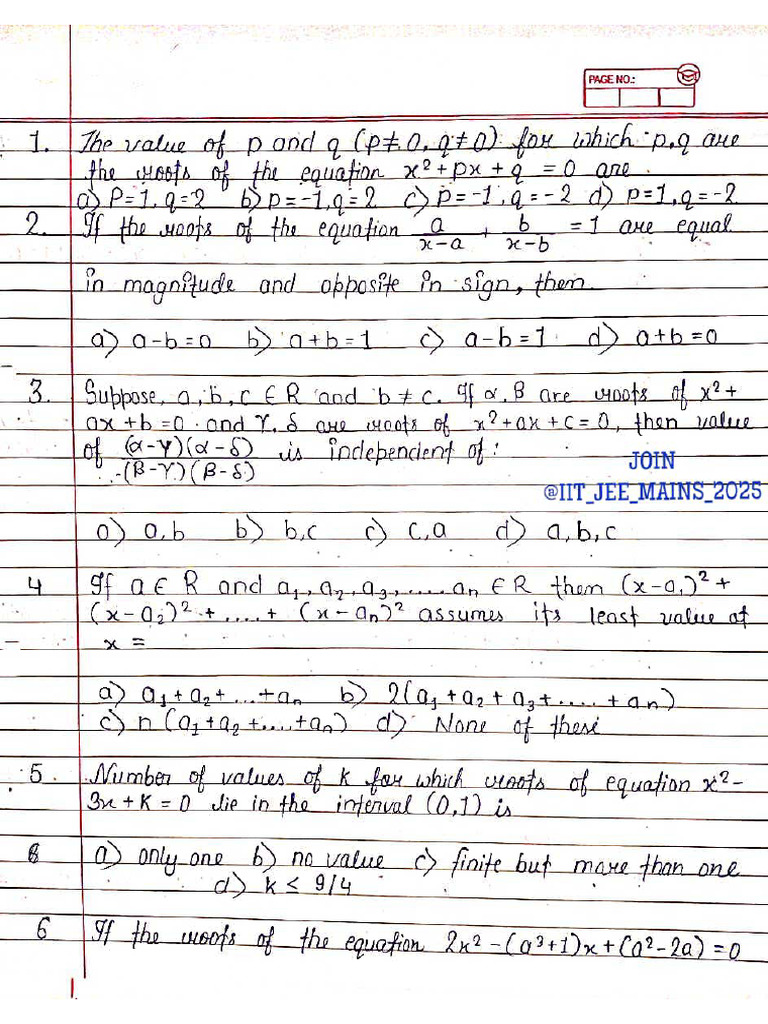 PAGE NO.:
1. The value of p and q (p≠0, q≠0) for which p,q are
the roots of the equation x² + px + q = 0 are
a) P=1, q=2 b) p=-1, q=2 c) p=-1, q=-2 d) p=1, q=-2
2. If the roots of the equation a/(x-a) + b/(x-b) = 1 are equal
in magnitude and opposite in sign, then
a) a-b=0 b) a+b=1 c) a-b=1 d) a+b=0
3. Suppose, a, b, c ∈ R and b ≠ c. If α, β are roots of x² +
ax + b = 0 and γ, δ are roots of x² + ax + c = 0, then value
of (α-γ)(α-δ)/(β-γ)(β-δ) is independent of:
JOIN
@IIT_JEE_MAINS_2025
a) a,b b) b,c c) c,a d) a,b,c
4 If a ∈ R and a₁, a₂, a₃, .....an ∈ R then (x-a₁)² +
(x-a₂)² + ..... + (x-an)² assumes its least value at
x =
a) a₁+a₂+...+an b) 2(a₁+a₂+a₃+.....+an)
c) n(a₁+a₂+....+an) d) None of these
5 Number of values of k for which roots of equation x² -
3x + K = 0 lie in the interval (0,1) is
8 a) only one b) no value c) finite but more than one
d) k ≤ 9/4
6 If the roots of the equation 2x² - (a³+1)x + (a²-2a) = 0